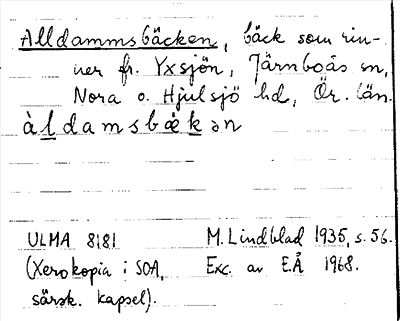 Alldammsbäcken, bäck som rin-
ner fr. Yxsjön, Järnboås sn,
Nora o. Hjulsjö hd, Ör. län.
àldamsbækən
ULMA 8181 M. Lindblad 1935, s. 56.
(Xerokopia i SOA, Exc. av E.Å 1968.
särsk. kapsel).